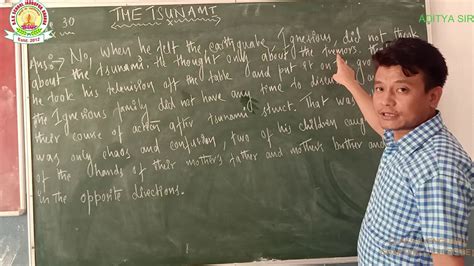 ADITYA SIR
Estd. 2012
30
THE TSUNAMI
Ans:- No, when he felt the earthquake, Ignevious did not think
about the tsunami. He thought only about the tremors.
he took his television off the table and put it on
the Ignevious family did not have any time to discuss
their course of action after tsunami struck. That was
was only chaos and confusion, two of his children
of the hands of their mother's father and mother's brother and
in the opposite directions.